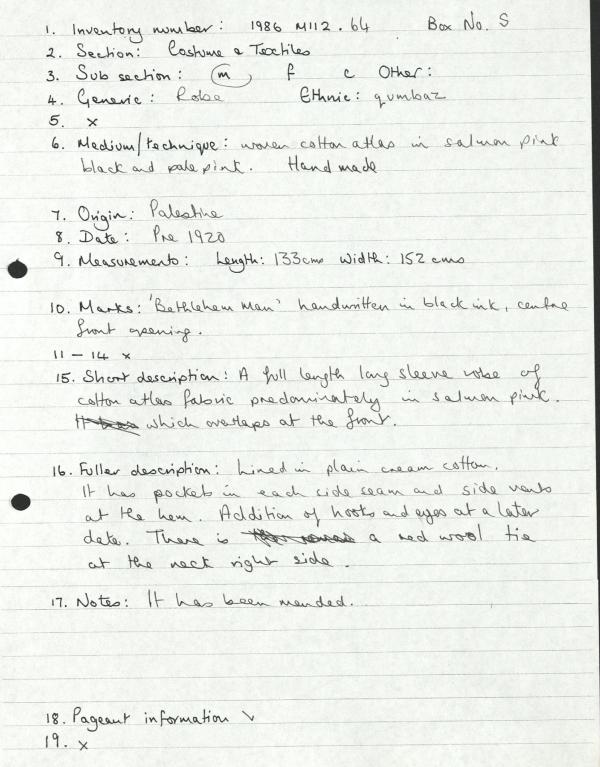 1. Inventory number: 1986 M112.64 Box No. S
2. Section: Costume & Textiles
3. Sub section: m f c Other:
4. Generic: Robe Ethnic: qumbaz
5. x
6. Medium/technique: woven cotton atlas in salmon pink
black and pale pink. Hand made
7. Origin: Palestine
8. Date: Pre 1920
9. Measurements: Length: 133cms Width: 152 cms
10. Marks: 'Bethlehem Man' handwritten in black ink, centre
front opening.
11 - 14 x
15. Short description: A full length long sleeve robe of
cotton atlas fabric predominately in salmon pink.
which overlaps at the front.
16. Fuller description: Lined in plain cream cotton.
It has pockets in each side seam and side vents
at the hem. Addition of hooks and eyes at a later
date. There is a red wool tie
at the neck right side.
17. Notes: It has been mended.
18. Pageant information
19. x